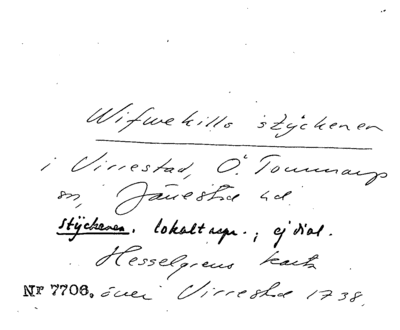 Wifwekills styckenen
i Virrestad, Ö. Tommarp
sn, Järrestad hd.
styckenen. lokalt upr.; ej dial.
Hesselgrens karta
Nr 7706. över Virrestad 1738.